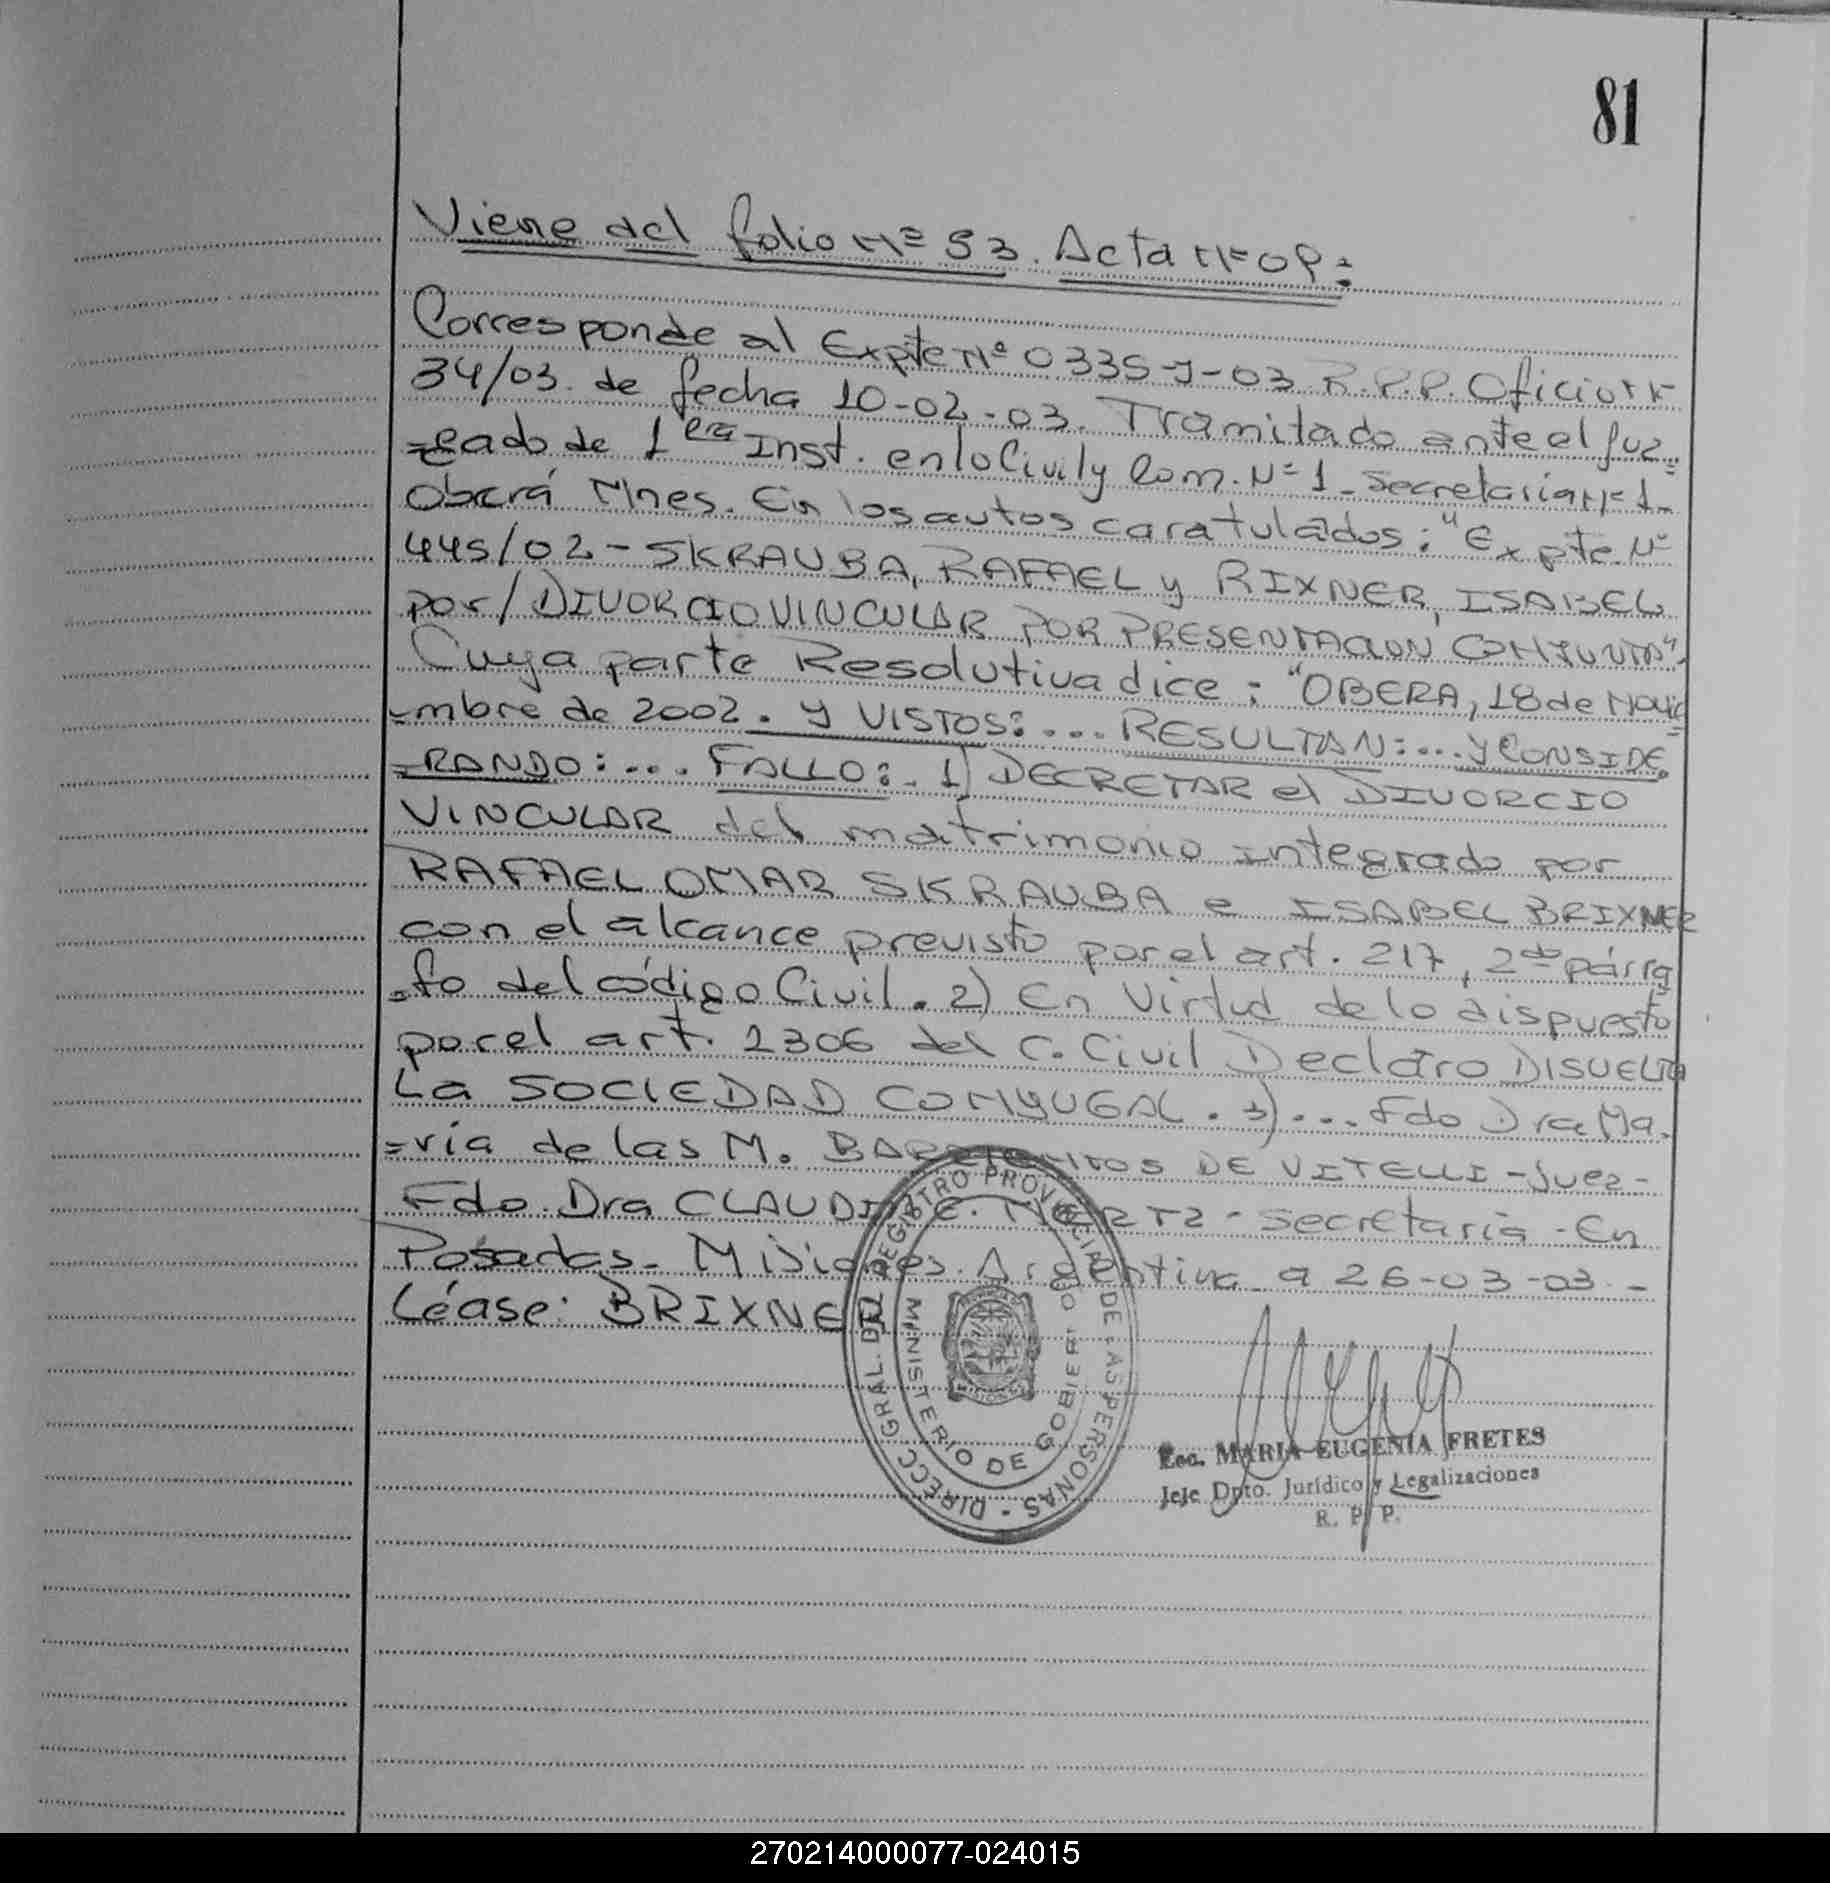 81
Viene del folio Nº 53. Acta Nº 09:
Corresponde al Expte Nº 0335-J-03 R.P.P. Oficio Nº
34/03. de fecha 10-02-03. Tramitado ante el Juz=
=gado de 1era Inst. en lo Civil y Com. Nº 1 - Secretaria Nº 1-
Oberá Mnes. En los autos caratulados: "Expte. Nº
445/02 - SKRAUBA, RAFAEL y RIXNER, ISABEL
por/ DIVORCIO VINCULAR POR PRESENTACION CONJUNTA".
Cuya parte Resolutiva dice: "OBERA, 18 de Novie
=mbre de 2002. Y VISTOS: ... RESULTAN: ... y CONSIDE
=RANDO: ... FALLO: - 1) DECRETAR el DIVORCIO
VINCULAR del matrimonio integrado por
RAFAEL OMAR SKRAUBA e ISABEL BRIXNER
con el alcance previsto por el art. 217, 2do párra
=fo del código Civil. 2) En Virtud de lo dispuesto
por el art. 1306 del C. Civil Declaro DISUELTA
La SOCIEDAD CONYUGAL. 3) ... Fdo Dra Ma-
=ria de las M. BARRIENTOS DE VITELLI - Juez -
Fdo. Dra CLAUDIA C. MERTZ - Secretaria - En
Posadas - Misiones. Argentina a 26-03-03 -
Léase: BRIXNER
DIRECC. GRAL. DEL REGISTRO PROVINCIAL DE LAS PERSONAS -
MINISTERIO DE GOBIERNO
Lic. MARIA EUGENIA FRETES
Jefe Dpto. Jurídico y Legalizaciones
R. P. P.
270214000077-024015